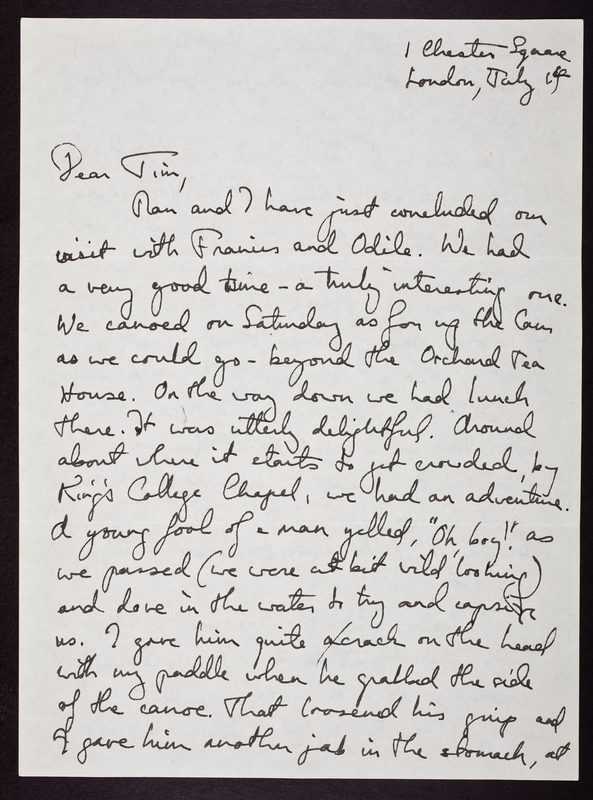 1 Chester Square
London, July 19
Dear Tim,
Ran and I have just concluded our
visit with Francis and Odile. We had
a very good time - a truly interesting one.
We canoed on Saturday as far up the Cam
as we could go - beyond the Orchard Tea
House. On the way down we had lunch
there. It was utterly delightful. Around
about where it starts to get crowded, by
King's College Chapel, we had an adventure.
A young fool of a man yelled, "Oh boy!" as
we passed (we were a bit wild looking)
and dove in the water to try and capsize
us. I gave him quite a crack on the head
with my paddle when he grabbed the side
of the canoe. That loosend his grip and
I gave him another jab in the stomach, at